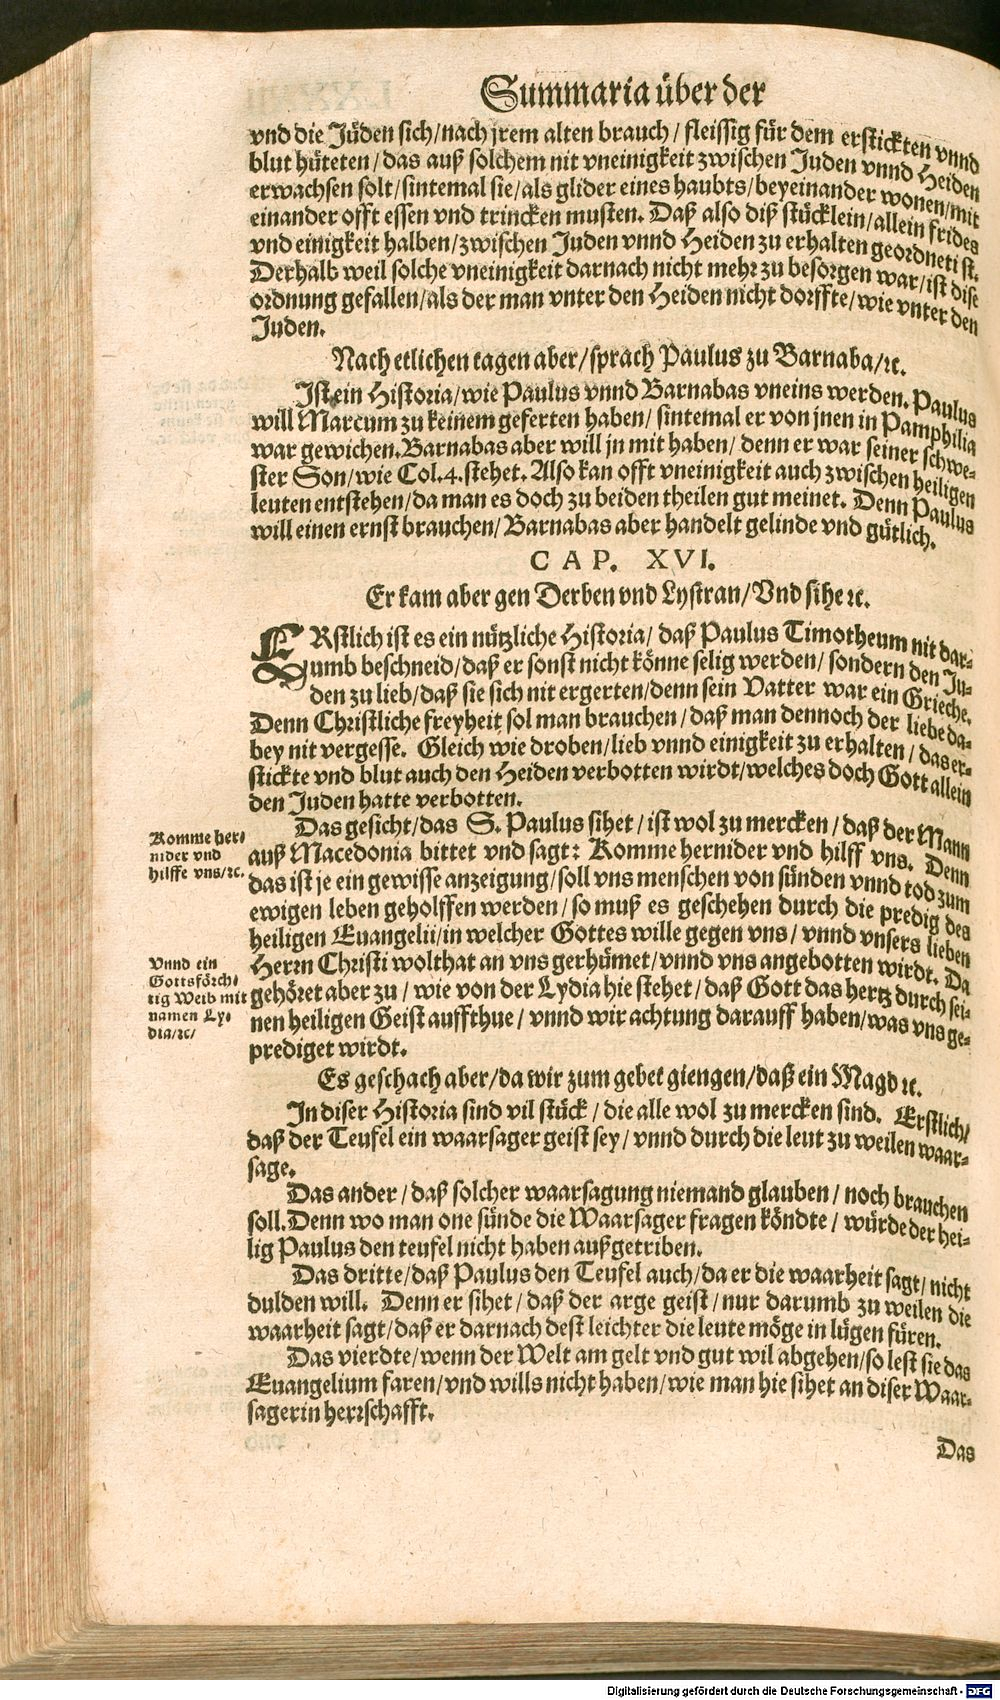 Summaria über der
vnd die Jüden sich/nach jrem alten brauch/ fleissig für dem erstickten vnnd
blut hüteten/das auß solchem nit vneinigkeit zwischen Juden vnnd Heiden
erwachsen solt/sintemal sie/als glider eines haubts/beyeinander wonen/mit
einander offt essen vnd trincken musten. Daß also diß stücklein/allein frides
vnd einigkeit halben/zwischen Juden vnnd Heiden zu erhalten geordnet ist.
Derhalb weil solche vneinigkeit darnach nicht mehr zu besorgen war/ist dise
ordnung gefallen/als der man vnter den Heiden nicht dorffte/wie vnter den
Juden.
Nach etlichen tagen aber/sprach Paulus zu Barnaba/ꝛc.
Ist ein Historia/wie Paulus vnnd Barnabas vneins werden. Paulus
will Marcum zu keinem geferten haben/ sintemal er von jnen in Pamphilia
war gewichen. Barnabas aber will jn mit haben/ denn er war seiner schwe-
ster Son/wie Col.4.stehet. Also kan offt vneinigkeit auch zwischen heiligen
leuten entstehen/da man es doch zu beiden theilen gut meinet. Denn Paulus
will einen ernst brauchen/Barnabas aber handelt gelinde vnd gütlich.
CAP. XVI.
Er kam aber gen Derben vnd Lystran/Vnd sihe ꝛc.
ERstlich ist es ein nützliche Historia/ daß Paulus Timotheum nit dar-
umb beschneid/daß er sonst nicht könne selig werden/ sondern den Ju-
den zu lieb/daß sie sich nit ergerten/denn sein Vatter war ein Grieche.
Denn Christliche freyheit sol man brauchen/daß man dennoch der liebe da-
bey nit vergesse. Gleich wie droben/lieb vnnd einigkeit zu erhalten/das er-
stickte vnd blut auch den Heiden verbotten wirdt/welches doch Gott allein
den Juden hatte verbotten.
Das gesicht/das S. Paulus sihet/ist wol zu mercken/daß der Mann
auß Macedonia bittet vnd sagt: Komme hernider vnd hilff vns. Denn
das ist je ein gewisse anzeigung/soll vns menschen von sünden vnnd tod zum
ewigen leben geholffen werden/so muß es geschehen durch die predig des
heiligen Euangelii/in welcher Gottes wille gegen vns/ vnnd vnsers lieben
Herrn Christi wolthat an vns gerhümet/vnnd vns angebotten wirdt. Da
gehöret aber zu/ wie von der Lydia hie stehet/daß Gott das hertz durch sei-
nen heiligen Geist auffthue/ vnnd wir achtung darauff haben/was vns ge-
prediget wirdt.
Komme her-
nider vnd
hilffe vns/ꝛc.
Vnnd ein
Gottsförch-
tig Weib mit
namen Ly-
dia/ꝛc/
Es geschach aber/da wir zum gebet giengen/daß ein Magd ꝛc.
In diser Historia sind vil stück/ die alle wol zu mercken sind. Erstlich/
daß der Teufel ein waarsager geist sey/ vnnd durch die leut zu weilen waar-
sage.
Das ander/daß solcher waarsagung niemand glauben/ noch brauchen
soll. Denn wo man one sünde die Waarsager fragen köndte/ würde der hei-
lig Paulus den teufel nicht haben außgetriben.
Das dritte/daß Paulus den Teufel auch/da er die waarheit sagt/ nicht
dulden will. Denn er sihet/daß der arge geist/nur darumb zu weilen die
waarheit sagt/daß er darnach dest leichter die leute möge in lügen füren.
Das vierdte/wenn der Welt am gelt vnd gut wil abgehen/so lest sie das
Euangelium faren/vnd wills nicht haben/wie man hie sihet an diser Waar-
sagerin herrschafft.
Das
Digitalisierung gefördert durch die Deutsche Forschungsgemeinschaft - DFG